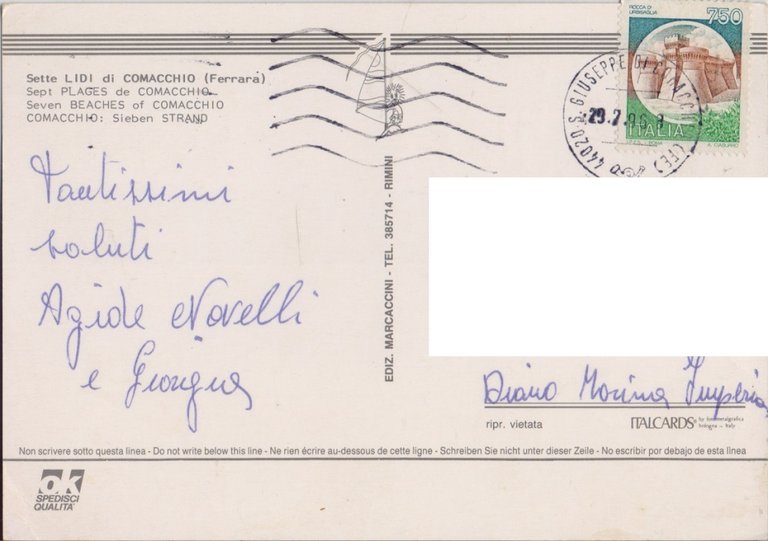 Sette LIDI di COMACCHIO (Ferrara)
Sept PLAGES de COMACCHIO
Seven BEACHES of COMACCHIO
COMACCHIO: Sieben STRAND
Tantissimi
saluti
Agide Novelli
e Giorgina
EDIZ. MARCACCINI - TEL. 385714 - RIMINI
ROCCA DI
URBISAGLIA
750
ITALIA
44020 S. GIUSEPPE DI COMACCHIO (FE)
29.7.96
Diano Marina Imperia
ripr. vietata
ITALCARDS
bologna - italy
Non scrivere sotto questa linea - Do not write below this line - Ne rien écrire au-dessous de cette ligne - Schreiben Sie nicht unter dieser Zeile - No escribir por debajo de esta línea
ok
SPEDISCI
QUALITÀ